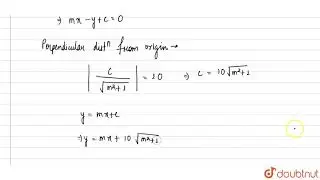 ⇒ mx - y + c = 0
Perpendicular distⁿ from origin →
| c / √m²+1 | = 10 ⇒ c = 10√m²+1
y = mx + c
⇒ y = mx + 10 √m²+1
doubtnut